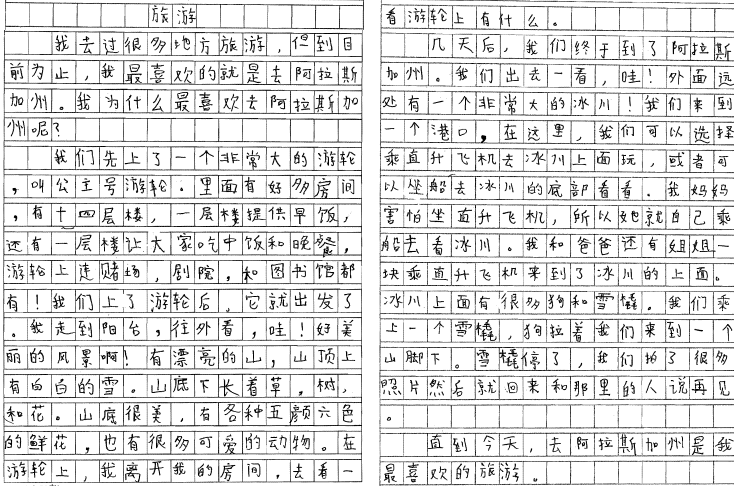 旅游
我去过很多地方旅游，但到目
前为止，我最喜欢的就是去阿拉斯
加州。我为什么最喜欢去阿拉斯加
州呢？
我们先上了一个非常大的游轮
，叫公主号游轮。里面有好多房间
，有十四层楼，一层楼提供早饭，
还有一层楼让大家吃中饭和晚餐，
游轮上连赌场，剧院，和图书馆都
有！我们上了游轮后，它就出发了
。我走到阳台，往外看，哇！好美
丽的风景啊！有漂亮的山，山顶上
有白白的雪。山底下长着草，树，
和花。山底很美，有各种五颜六色
的鲜花，也有很多可爱的动物。在
游轮上，我离开我的房间，去看一
看游轮上有什么。
几天后，我们终于到了阿拉斯
加州。我们出去一看，哇！外面远
处有一个非常大的冰川！我们来到
一个港口，在这里，我们可以选择
乘直升飞机去冰川上面玩，或者可
以坐船去冰川的底部看看。我妈妈
害怕坐直升飞机，所以她就自己乘
船去看冰川。我和爸爸还有姐姐一
块乘直升飞机来到了冰川的上面。
冰川上面有很多狗和雪橇。我们乘
上一个雪橇，狗拉着我们来到一个
山脚下。雪橇停了，我们拍了很多
照片然后就回来和那里的人说再见
。
直到今天，去阿拉斯加州是我
最喜欢的旅游。